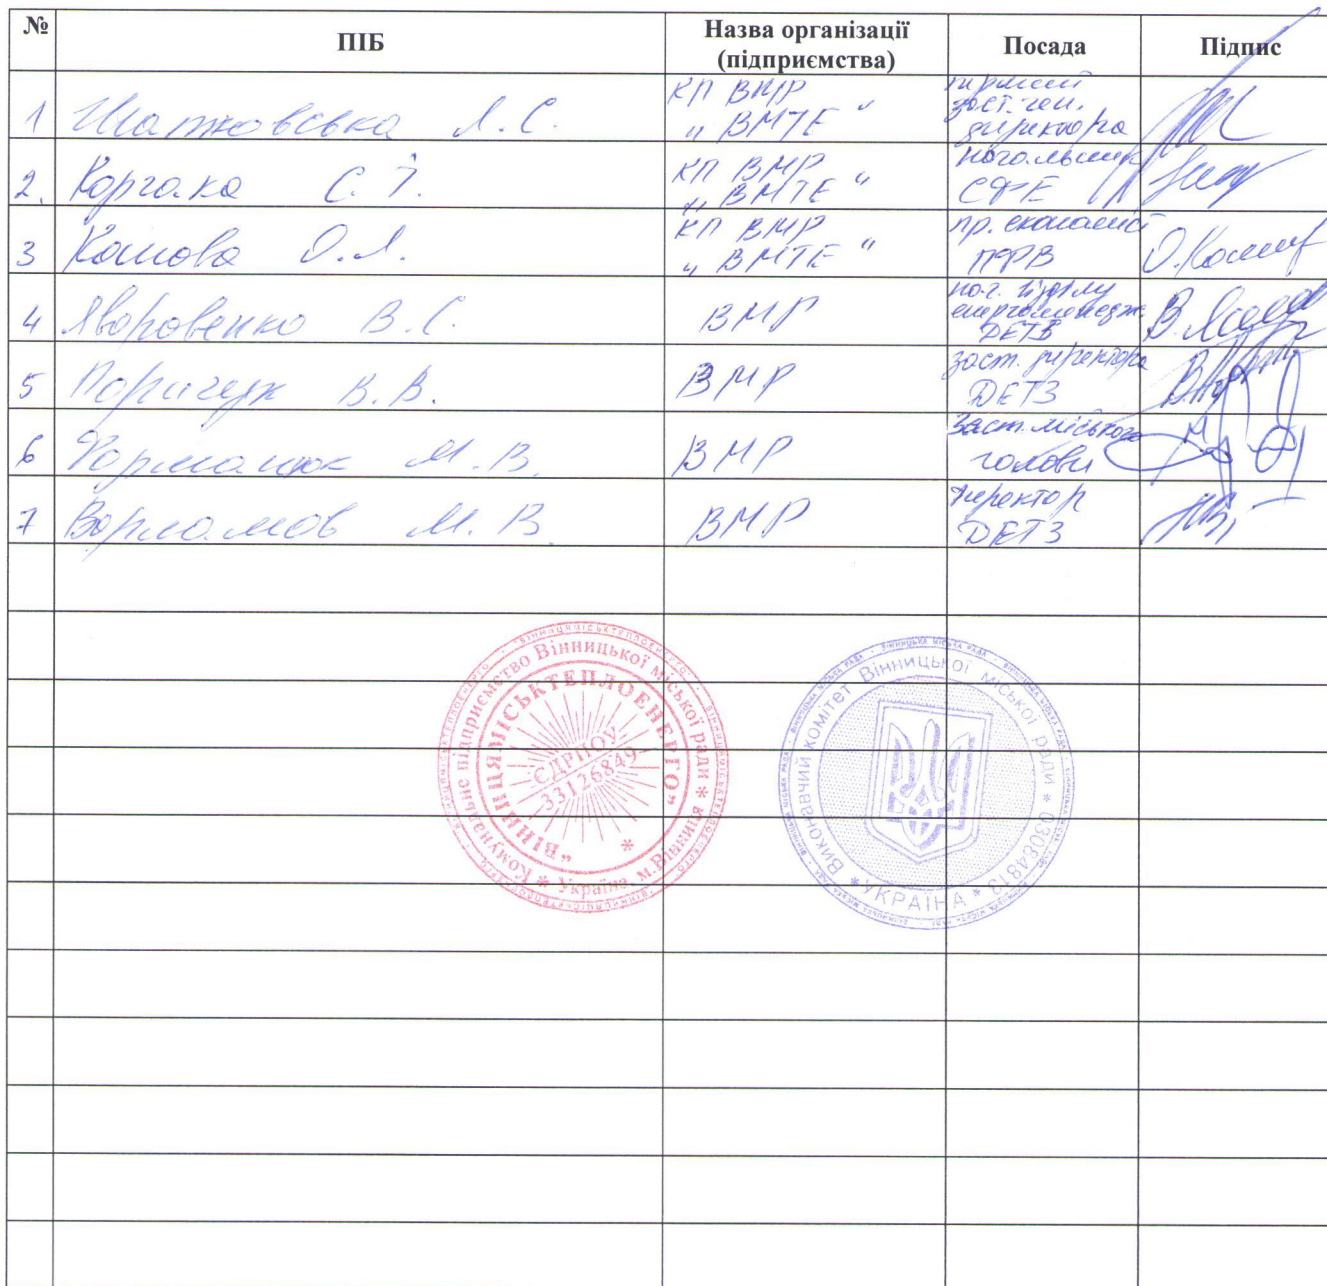 № ПІБ Назва організації (підприємства) Посада Підпис
1 Шатковська Л.С. КП ВМР „ВМТЕ“ перший заст. ген. директора
2. С. КП ВМР „ВМТЕ“ СФЕ
3 Кашова О.Л. КП ВМР „ВМТЕ“ пр. економіст ПФВ О.
4 Яворовенко В.С. ВМР нач. відділу енергоменеджм. В.
5 Поріцук В.В. ВМР заст. директора ДЕТЗ
6 Форманюк М.В. ВМР заст. міського голови
7 Варламов М.В. ВМР директор ДЕТЗ
* Комунальне підприємство Вінницької міської ради * Україна м.Вінниця
"ВІННИЦЯМІСЬКТЕПЛОЕНЕРГО" *
ЄДРПОУ
33126849
Виконавчий комітет Вінницької міської ради * 03084813
* УКРАЇНА *